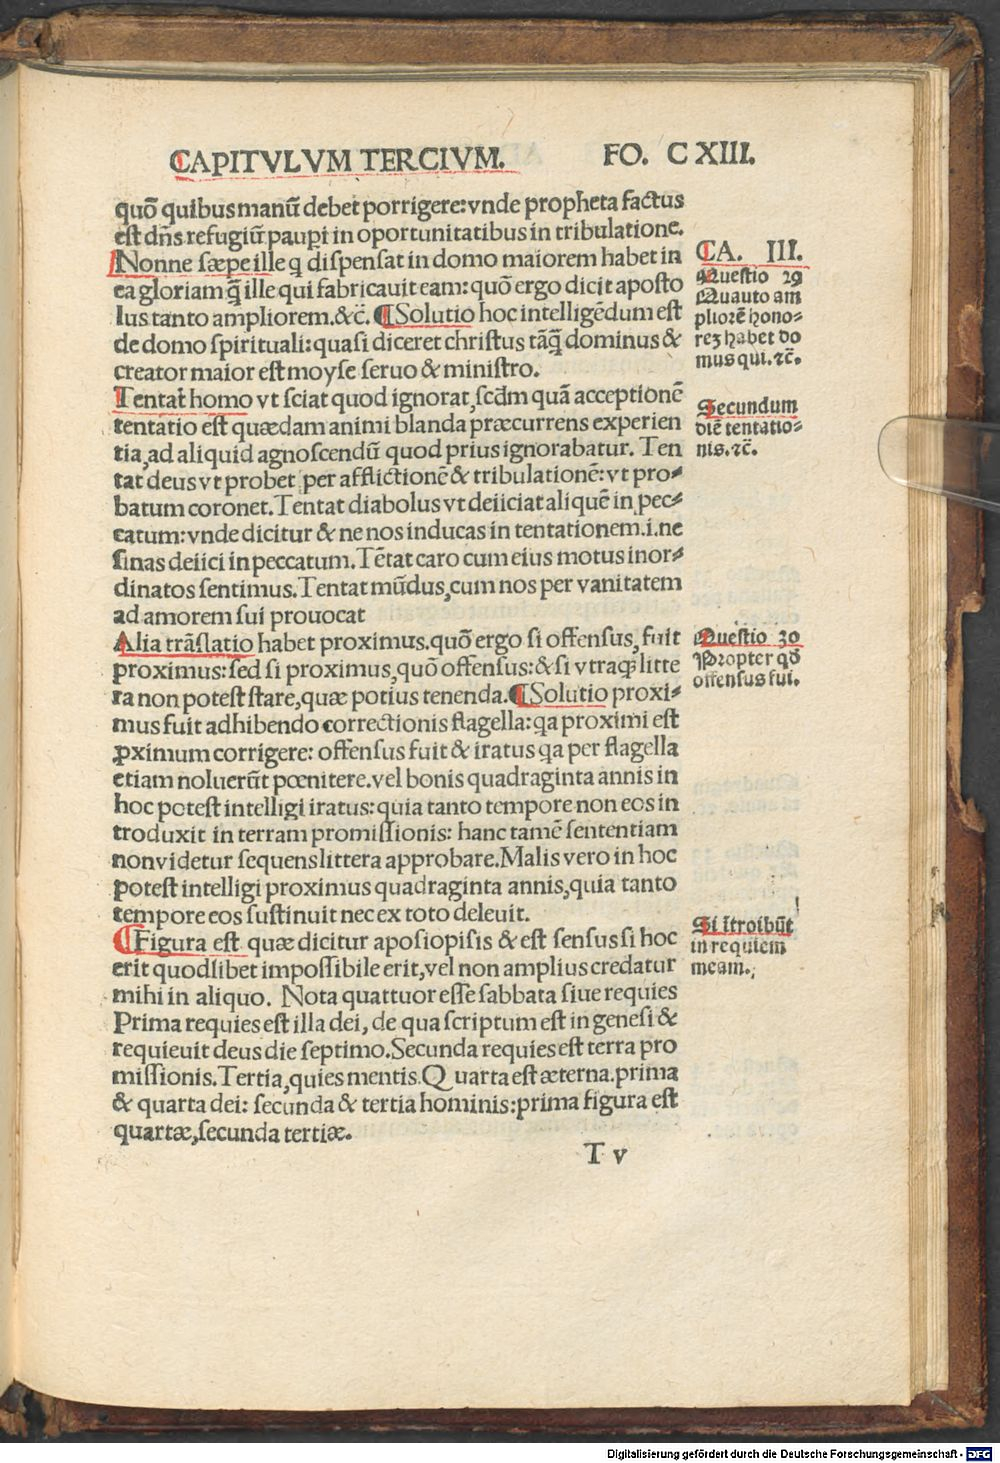 CAPITVLVM TERCIVM. FO. CXIII.
quō quibus manū debet porrigere: vnde propheta factus
est dn̄s refugiū pauꝑi in oportunitatibus in tribulatione.
Nonne sæpe ille q̨ dispensat in domo maiorem habet in
ea gloriam q̄ꝫ ille qui fabricauit eam: quō ergo dicit aposto
lus tanto ampliorem. &c̄. ¶ Solutio hoc intelligēdum est
de domo spirituali: quasi diceret christus tāq̄ꝫ dominus &
creator maior est moyse seruo & ministro.
Tentat homo vt sciat quod ignorat, scd̄m quā acceptionē
tentatio est quædam animi blanda præcurrens experien
tia, ad aliquid agnoscendū quod prius ignorabatur. Ten
tat deus vt probet per afflictionē & tribulationē: vt pro⸗
batum coronet. Tentat diabolus vt deiiciat aliquē in pec⸗
catum: vnde dicitur & ne nos inducas in tentationem .i. ne
sinas deiici in peccatum. Tētat caro cum eius motus inor⸗
dinatos sentimus. Tentat mūdus, cum nos per vanitatem
ad amorem sui prouocat
Alia trāslatio habet proximus. quō ergo si offensus, fuit
proximus: sed si proximus, quō offensus: & si vtraqꝫ litte
ra non potest stare, quæ potius tenenda. ¶ Solutio proxi⸗
mus fuit adhibendo correctionis flagella: q̨a proximi est
ꝓximum corrigere: offensus fuit & iratus q̨a per flagella
etiam noluerūt pœnitere. vel bonis quadraginta annis in
hoc potest intelligi iratus: quia tanto tempore non eos in
troduxit in terram promissionis: hanc tamē sententiam
non videtur sequens littera approbare. Malis vero in hoc
potest intelligi proximus quadraginta annis, quia tanto
tempore eos sustinuit nec ex toto deleuit.
¶ Figura est quæ dicitur aposiopisis & est sensus si hoc
erit quodlibet impossibile erit, vel non amplius credatur
mihi in aliquo. Nota quattuor esse sabbata siue requies
Prima requies est illa dei, de qua scriptum est in genesi &
requieuit deus die septimo. Secunda requies est terra pro
missionis. Tertia, quies mentis. Quarta est æterna. prima
& quarta dei: secunda & tertia hominis: prima figura est
quartæ, secunda tertiæ.
T v
CA. III.
Questio 29
Quauto am
pliorē hono⸗
reꝫ habet do
mus qui. ⁊c̄.
Secundum
diē tentatio⸗
nis. ⁊c̄.
Questio 30
Propter qd̄
offensus fui.
Si ītroibūt
in requiem
meam.
Digitalisierung gefördert durch die Deutsche Forschungsgemeinschaft - DFG